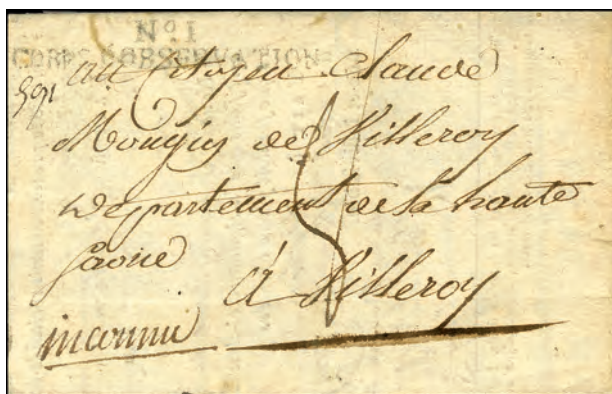 No 1
CORPS D'OBSERVATION
au Citoyen Claude
de Villeroy
Departement de la haute
Saone
à Villeroy
inconnu